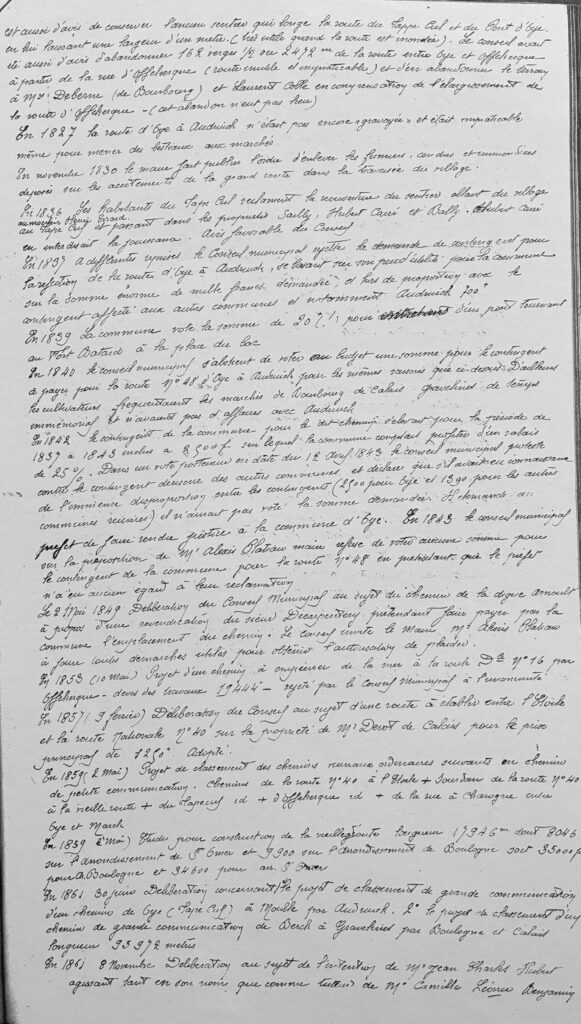 est aussi d'avis de conserver l'ancien sentier qui longe la route du Tape Cul et du Pont d'Oye,
en lui laissant une largeur d'un mètre (très utile quand la route est inondée). Le conseil avait
été aussi d'avis d'abandonner 162 verges 1/2 ou 2472 m de la route entre Oye et Offekerque
à partir de la rue d'Offekerque (route inutile et impraticable) et d'en abandonner le terrain
à Mr Deberne (de Bourbourg) et Laurent Colle en compensation de l'élargissement de
la route d'Offekerque - (cet abandon n'eut pas lieu)
En 1827 la route d'Oye à Audruick n'était pas encore "gravoyée" et était impraticable
même pour mener des bestiaux aux marchés.
En novembre 1830 le maire fait publier l'ordre d'enlever les fumiers, cendres et immondices
déposés sur les accotements de la grand route dans la traversée du village.
En 1836 Les habitants du Tape Cul réclament la réouverture du sentier allant du village
au Tape Cul et passant dans les propriétés Sailly, Hubert Carré et Bailly. Hubert Carré
en interdisait la jouissance Avis favorable du Conseil
En 1837 A différentes reprises le Conseil municipal rejette la demande de contingent pour
la réfection de la route d'Oye à Audruick, se basant sur son peu d'utilité pour la commune
sur la somme énorme de mille francs demandée, et hors de proposition avec le
contingent affecté aux autres communes et notamment Audruick 700 f
En 1839 La commune vote la somme de 20 f pour d'un pont tournant
au Fort Batard à la place du bac
En 1840 le conseil municipal s'abstient de voter au budget une somme pour le contingent
à payer pour la route N° 48 d'Oye à Audruick pour les mêmes raisons que ci-dessus. D'ailleurs
les cultivateurs fréquentaient les marchés de Bourbourg de Calais Gravelines de temps
immémorial et n'avaient pas d'affaires avec Audruick
En 1842 le contingent de la commune pour le dit chemin s'élevait pour la période de
1837 à 1843 inclus à 8500 f. sur lequel la commune comptait profiter d'un rabais
de 25%. Dans un vote protesteur en date du 12 avril 1843 le conseil municipal proteste
contre le contingent dérisoire des autres communes et déclare que s'il avait eu connaissance
de l'immense disproportion entre les contingents (2500 pour Oye et 1390 pour les autres
communes réunies) il n'aurait pas voté la somme demandée. Il demande au
préfet de faire rendre justice à la commune d'Oye. En 1843 le conseil municipal
sur la proposition de Mr Alexis Plateau maire refuse de voter aucune somme pour
le contingent de la commune pour la route N° 48 en prétextant que le préfet
n'a eu aucun égard à leur réclamation
Le 2 Mai 1849 Délibération du Conseil Municipal au sujet du chemin de la digue Arnoult
à propos d'une revendication du sieur Decarpentery prétendant faire payer par la
commune l'emplacement du chemin. Le conseil invite le Maire Mr Alexis Plateau
à faire toutes démarches utiles pour obtenir l'autorisation de plaider.
En 1853 (10 Mai) Projet d'un chemin à engraver de la mer à la route Dle N° 16 par
Offekerque - devis des travaux 19444 - rejeté par le Conseil Municipal à l'unanimité
En 1857 (9 février) Délibération du Conseil au sujet d'une route à établir entre l'Etoile
et la route Nationale N° 40 sur la propriété de Mr Devot de Calais pour le prix
principal de 1250 f Adopté.
En 1859 (2 Mai) Projet de classement des chemins ruraux ordinaires suivants en chemins
de petite communication. Chemins de la route N° 40 à l'Etoile + de la route N° 40
à la vieille route + du Tapecul id + d'Offekerque id + de la rue à Charogne entre
Oye et Marck
En 1859 (2 Mai) Etude pour construction de la longueur 17946 m dont 8046
sur l'arrondissement de St Omer et 9900 sur l'arrondissement de Boulogne soit 33000 f
pour Boulogne et 34600 pour arr. St Omer
En 1861 30 juin Délibération concernant 1° le projet de classement de grande communication
d'un chemin de Oye (Tape Cul) à Moulle par Audruick. 2° le projet de classement d'un
chemin de grande communication de Berck à Gravelines par Boulogne et Calais
longueur 93972 mètres
En 1861 8 Novembre Délibération au sujet de l'intention de Mr Jean Charles Hubert
agissant tant en son nom, que comme tuteur de Mr Camille Léonce Benjamin